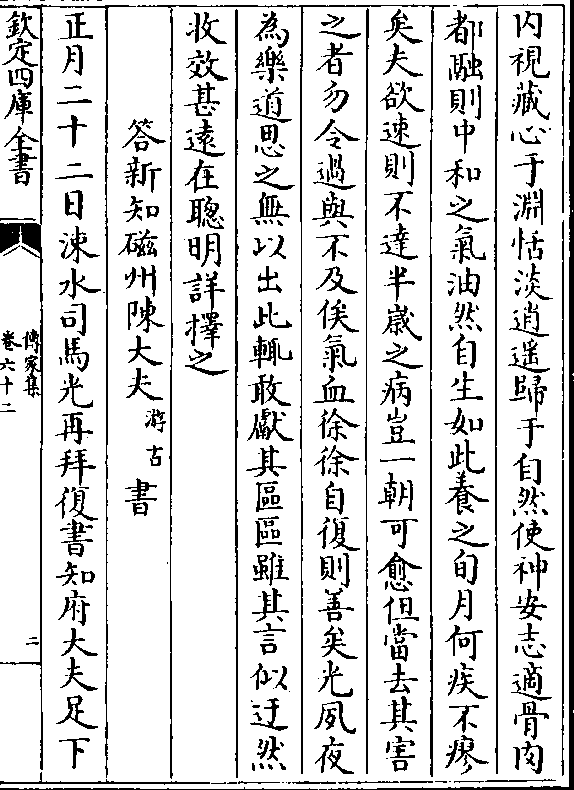 内視藏心于淵恬淡逍遥歸于自然使神安志適骨肉
都融則中和之氣油然自生如此養之旬月何疾不瘳
矣夫欲速則不達半嵗之病豈一朝可愈但當去其害
之者勿令過與不及俟氣血徐徐自復則善矣光夙夜
為樂道思之無以出此輒敢獻其區區雖其言似迂然
收效甚遠在聰明詳擇之
答新知磁州陳大夫游古書
正月二十二日涑水司馬光再拜復書知府大夫足下
欽定四庫全書
傳家集
卷六十二
二